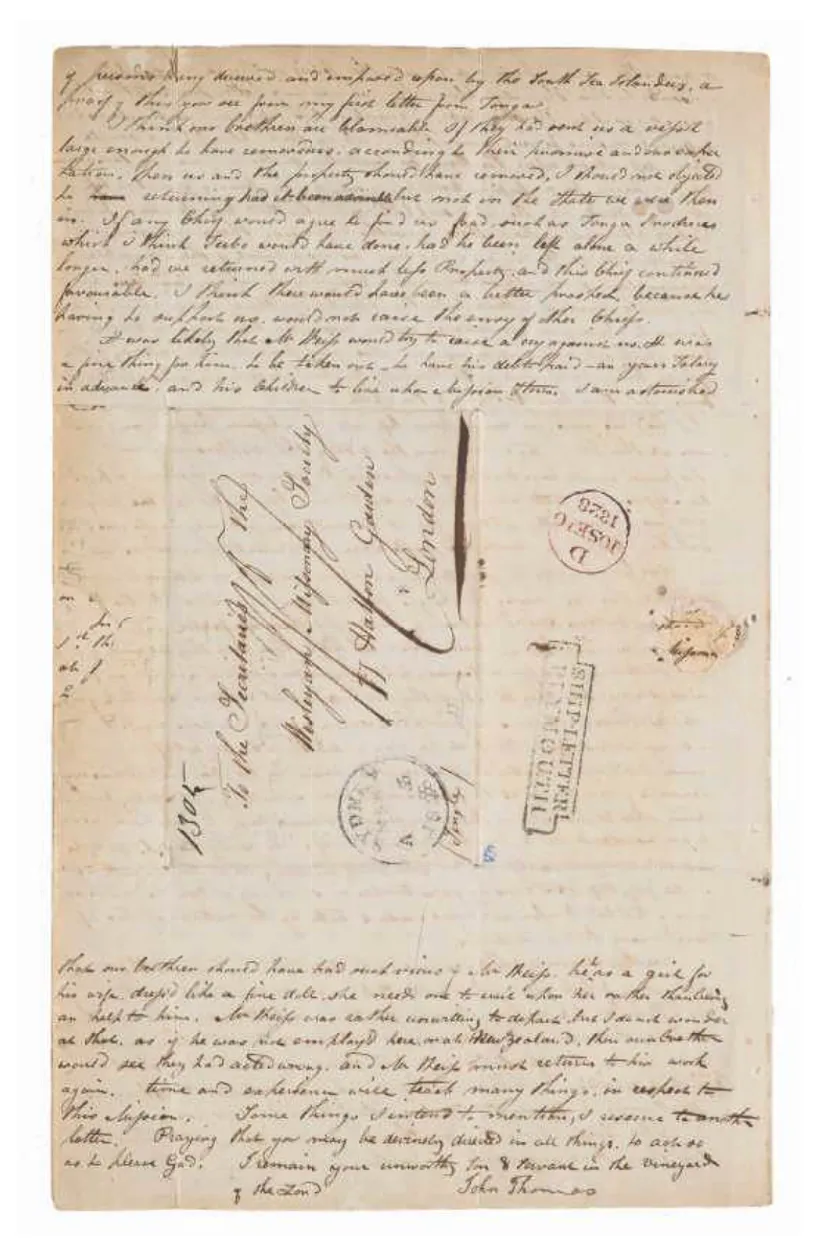 of persons being deceived and imposed upon by the South Sea Islanders, a
proof of this you see from my first letter from Tonga
I think our brethren are blameable if they had sent us a vessel
large enough to have removed us, according to their promise and our expec
tation. Then us and the property should have removed, I should not objected
to returning had it been but not in the State we were then
in. If any Chief would agree to find us food such as Tonga Produces
which I think Tubo would have done, had he been left alone a while
longer, had we returned with much less Property, and this Chief continued
favourable. I think there would have been a better prospect, because he
having to support us, would not raise the envy of other Chiefs.
It was likely that Mr Weiss would try to raise a cry against us. It was
a fine thing for him, to be taken out to have his debts paid an years Salary
in advance, and his Children to live upon Mission Stores. I am astonished
To the Secretaries of The
Wesleyan Missionary Society
77 Hatton Garden
London
1305
Single
D
10 SE 10
1828
SHIP LETTER
PLYMOUTH
that our brethren should have had such views of Mr Weiss, he has a girl for
his wife, dress'd like a fine doll, she needs one to wait upon her rather than being
an help to him. Mr Weiss was rather unwilling to depart but I do not wonder
at that, as if he was not employ'd here, or at New Zealand, then our brethren
would see they had acted wrong, and Mr Weiss must return to his work
again. time and experience will teach many things, in respect to
this Mission. Some things I intend to mention, I reserve to another
letter. Praying that you may be devinely directed in all things, to act so
as to please God. I remain your unworthy Son & Servant in the vineyard
of the Lord John Thomas